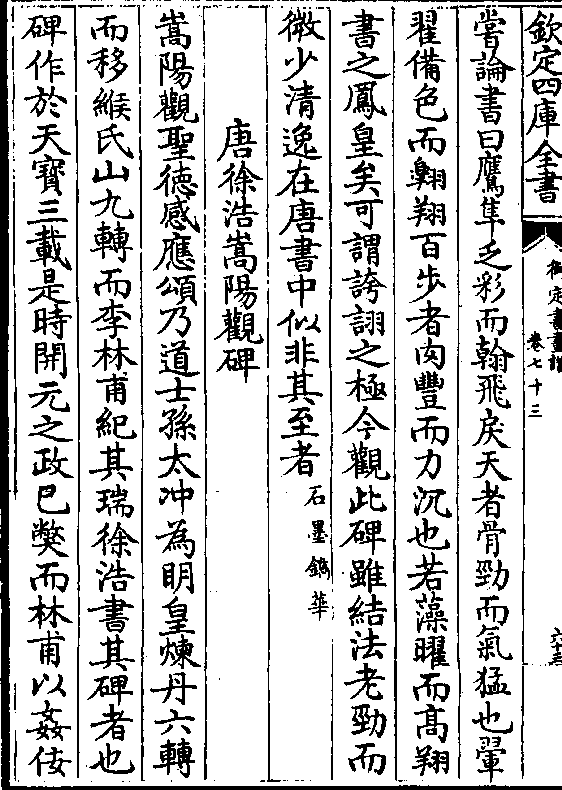 欽定四庫全書
御定書畫譜
卷七十三
六十三
嘗論書曰鷹隼乏彩而翰飛戾天者骨勁而氣猛也翬
翟備色而翺翔百步者肉豐而力沉也若藻曜而髙翔
書之鳳皇矣可謂誇詡之極今觀此碑雖結法老勁而
微少清逸在唐書中似非其至者石墨鐫華
唐徐浩嵩陽觀碑
嵩陽觀聖徳感應頌乃道士孫太冲為明皇煉丹六轉
而移緱氏山九轉而李林甫紀其瑞徐浩書其碑者也
碑作於天寳三載是時開元之政已獘而林甫以姦佞